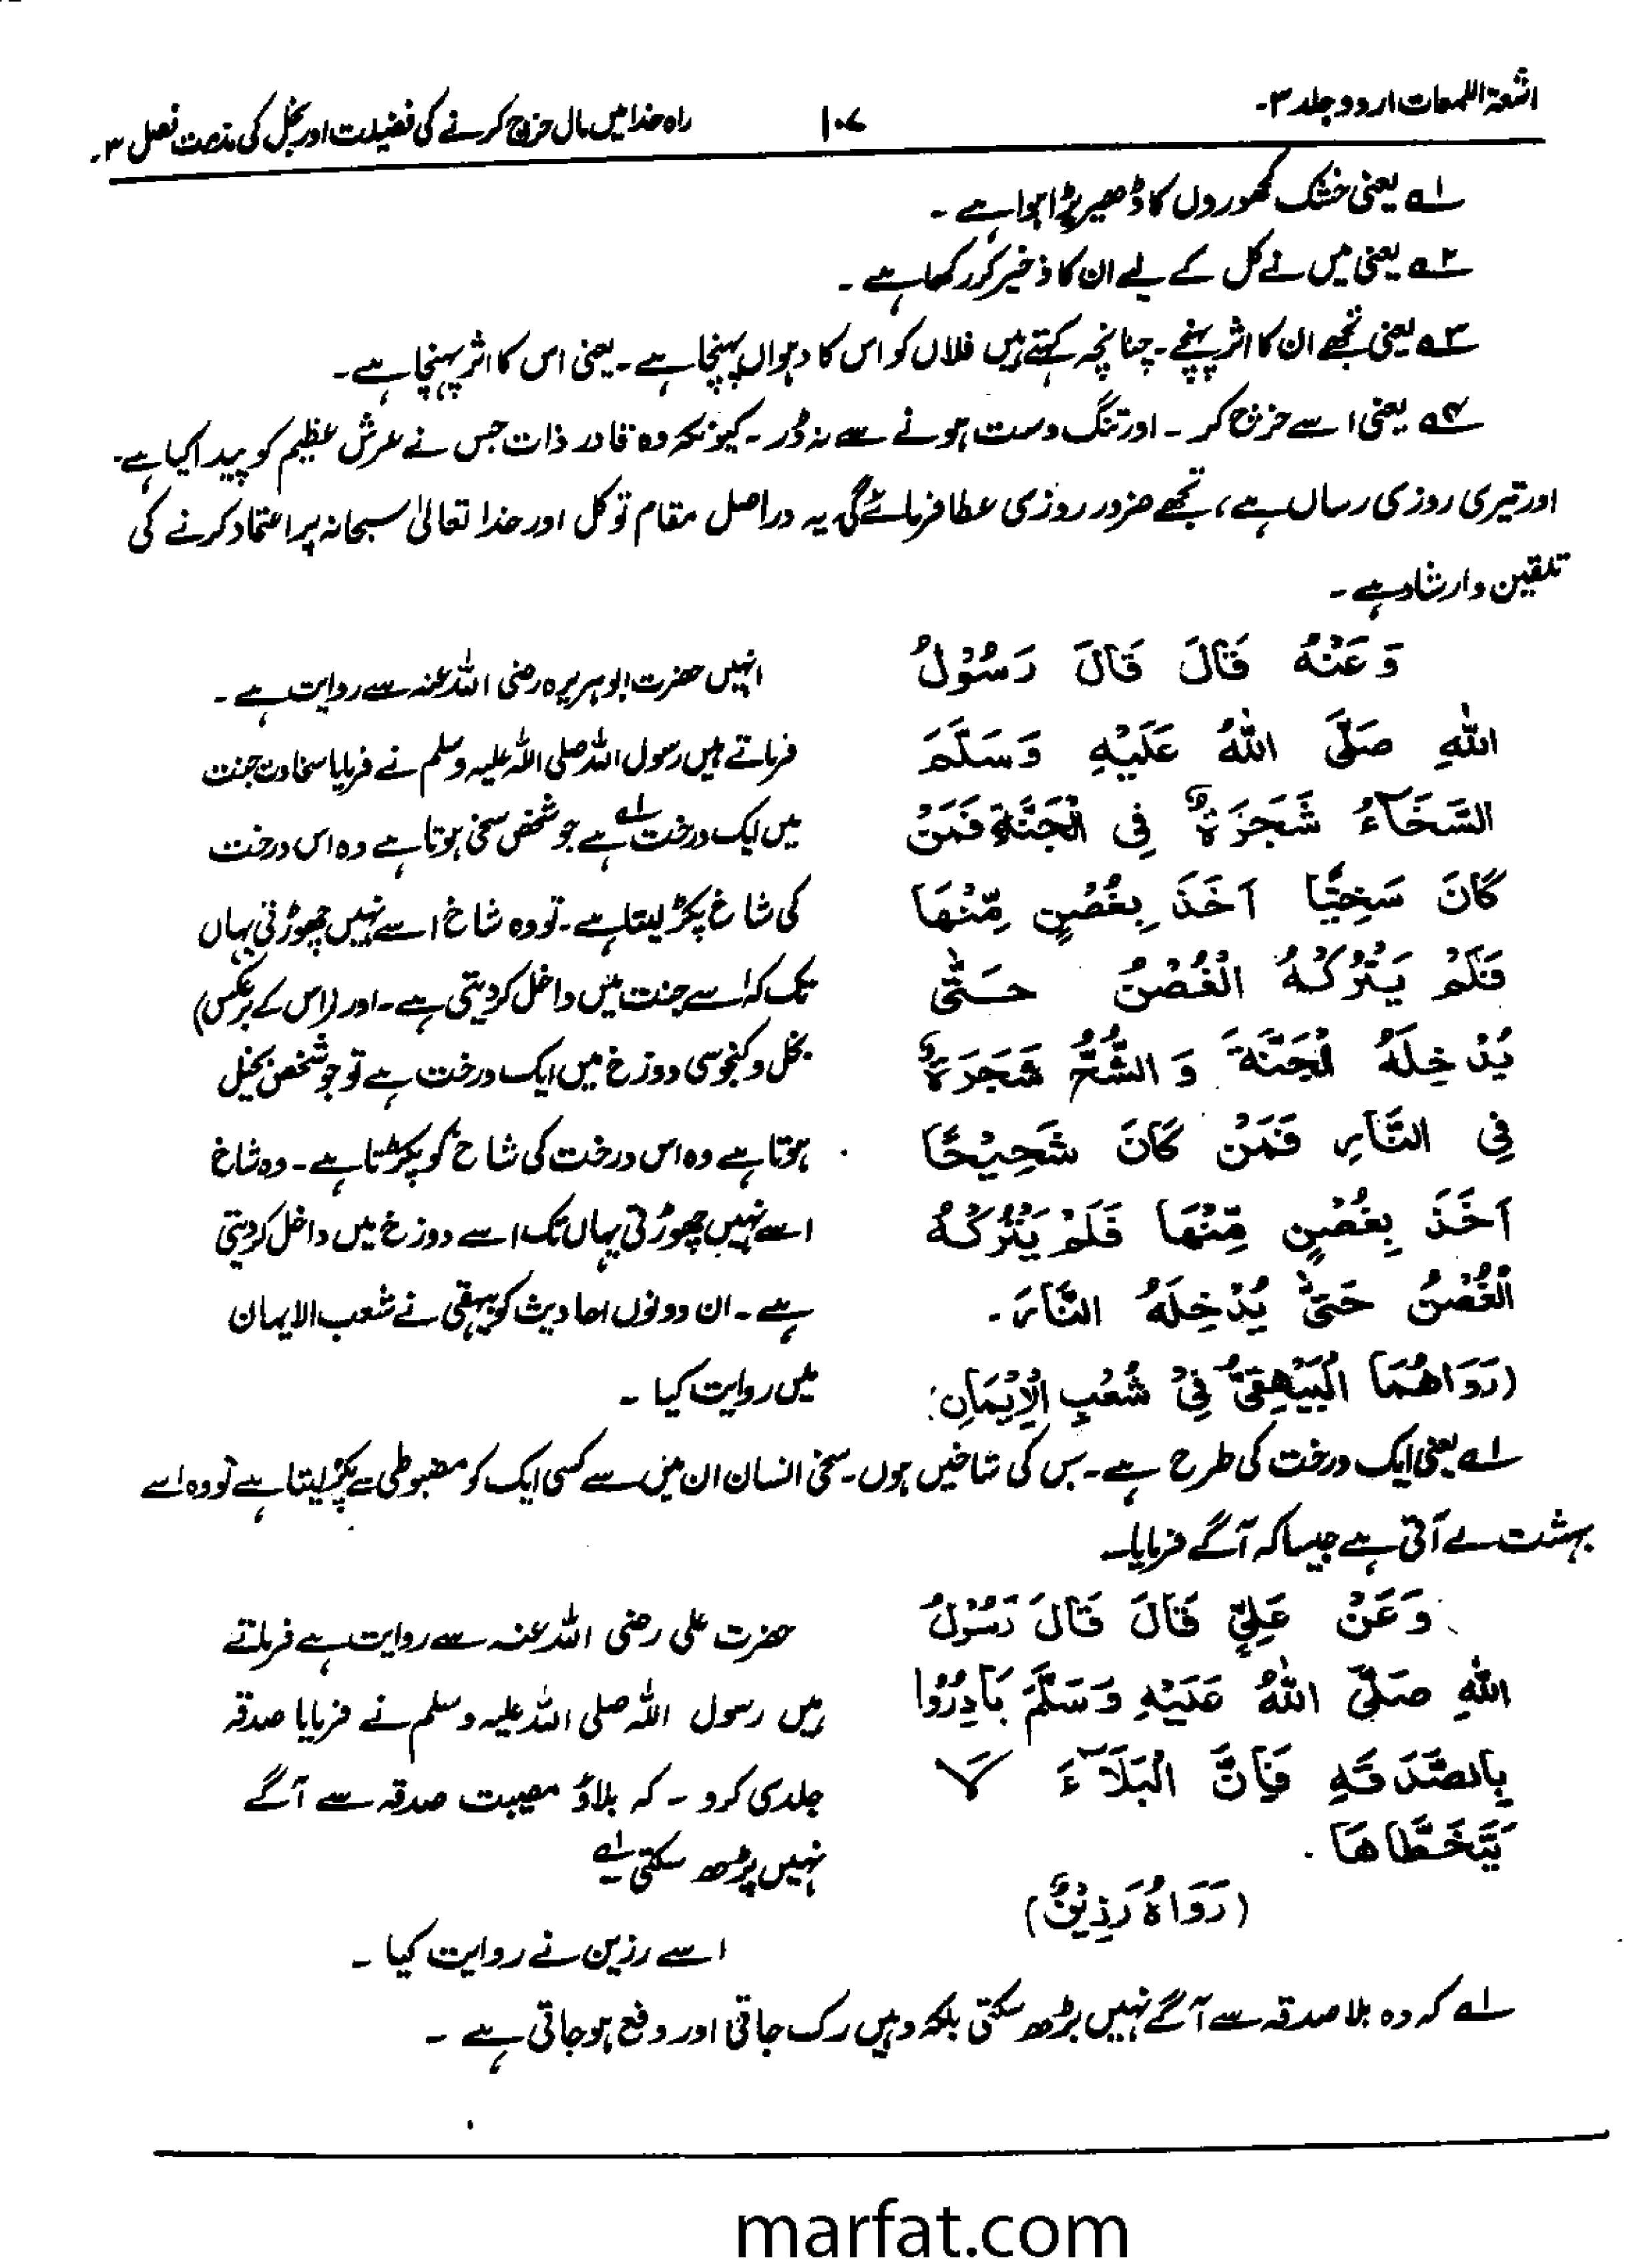 اشعۃ اللمعات اردو جلد ۳۔
۱۰۷
راہ خدا میں مال خرچ کرنے کی فضیلت اور بخل کی مذمت فصل ۳۔
۱ے یعنی خشک کھجوروں کا ڈھیر پڑا ہوا ہے ۔
۲ے یعنی میں نے کل کے لیے ان کا ذخیر کر رکھا ہے ۔
۳ے یعنی تجھے ان کا اثر پہنچے۔ چنانچہ کہتے ہیں فلاں کو اس کا دہواں پہنچا ہے۔ یعنی اس کا اثر پہنچا ہے۔
۴ے یعنی اسے خرچ کر ۔ اور تنگ دست ہونے سے نہ ڈر ۔ کیونکہ وہ قادر ذات جس نے عرش عظیم کو پیدا کیا ہے۔
اور تیری روزی رساں ہے، تجھے ضرور روزی عطا فرمائے گی یہ دراصل مقام توکل اور خدا تعالیٰ سبحانہ پر اعتماد کرنے کی
تلقین و ارشاد ہے ۔
وَعَنْهُ قَالَ قَالَ رَسُوْلُ
اللّٰهِ صَلَّى اللّٰهُ عَلَيْهِ وَسَلَّمَ
السَّخَآءُ شَجَرَةٌ فِى الْجَنَّةِ فَمَنْ
كَانَ سَخِيًّا اَخَذَ بِغُصْنٍ مِّنْهَا
فَلَمْ يَتْرُكْهُ الْغُصْنُ حَتّٰى
يُدْخِلَهُ الْجَنَّةَ وَ الشُّحُّ شَجَرَةٌ
فِى النَّارِ فَمَنْ كَانَ شَحِيْحًا
اَخَذَ بِغُصْنٍ مِّنْهَا فَلَمْ يَتْرُكْهُ
الْغُصْنُ حَتّٰى يُدْخِلَهُ النَّارَ۔
(رَوَاهُمَا الْبَيْهَقِىُّ فِىْ شُعَبِ الْاِيْمَانِ:
انہیں حضرت ابو ہریرہ رضی اللہ عنہ سے روایت ہے ۔
فرماتے ہیں رسول اللہ صلی اللہ علیہ وسلم نے فرمایا سخاوت جنت
میں ایک درخت ۱ے ہے جو شخص سخی ہوتا ہے وہ اس درخت
کی شاخ پکڑ لیتا ہے۔ تو وہ شاخ اسے نہیں چھوڑتی یہاں
تک کہ اسے جنت میں داخل کر دیتی ہے۔ اور (اس کے برعکس)
بخل و کنجوسی دوزخ میں ایک درخت ہے تو جو شخص بخیل
ہوتا ہے وہ اس درخت کی شاخ کو پکڑتا ہے۔ وہ شاخ
اسے نہیں چھوڑتی یہاں تک اسے دوزخ میں داخل کر دیتی
ہے ۔ ان دونوں احادیث کو بیہقی نے شعب الایمان
میں روایت کیا ۔
۱ے یعنی ایک درخت کی طرح ہے۔ جس کی شاخیں ہوں۔ سخی انسان ان میں سے کسی ایک کو مضبوطی سے پکڑ لیتا ہے تو وہ اسے
بہشت لے آتی ہے جیسا کہ آگے فرمایا۔
وَعَنْ عَلِيٍّ قَالَ قَالَ رَسُوْلُ
اللّٰهِ صَلَّى اللّٰهُ عَلَيْهِ وَسَلَّمَ بَادِرُوْا
بِالصَّدَقَةِ فَاِنَّ الْبَلَآءَ لَا
يَتَخَطَّاهَا ۔
(رَوَاهُ رَزِيْنٌ)
حضرت علی رضی اللہ عنہ سے روایت ہے فرماتے
ہیں رسول اللہ صلی اللہ علیہ وسلم نے فرمایا صدقہ
جلدی کرو ۔ کہ بلاؤ مصیبت صدقہ سے آگے
نہیں بڑھ سکتی ۱ے
اسے رزین نے روایت کیا ۔
۱ے کہ وہ بلا صدقہ سے آگے نہیں بڑھ سکتی بلکہ وہیں رک جاتی اور دفع ہو جاتی ہے ۔
marfat.com